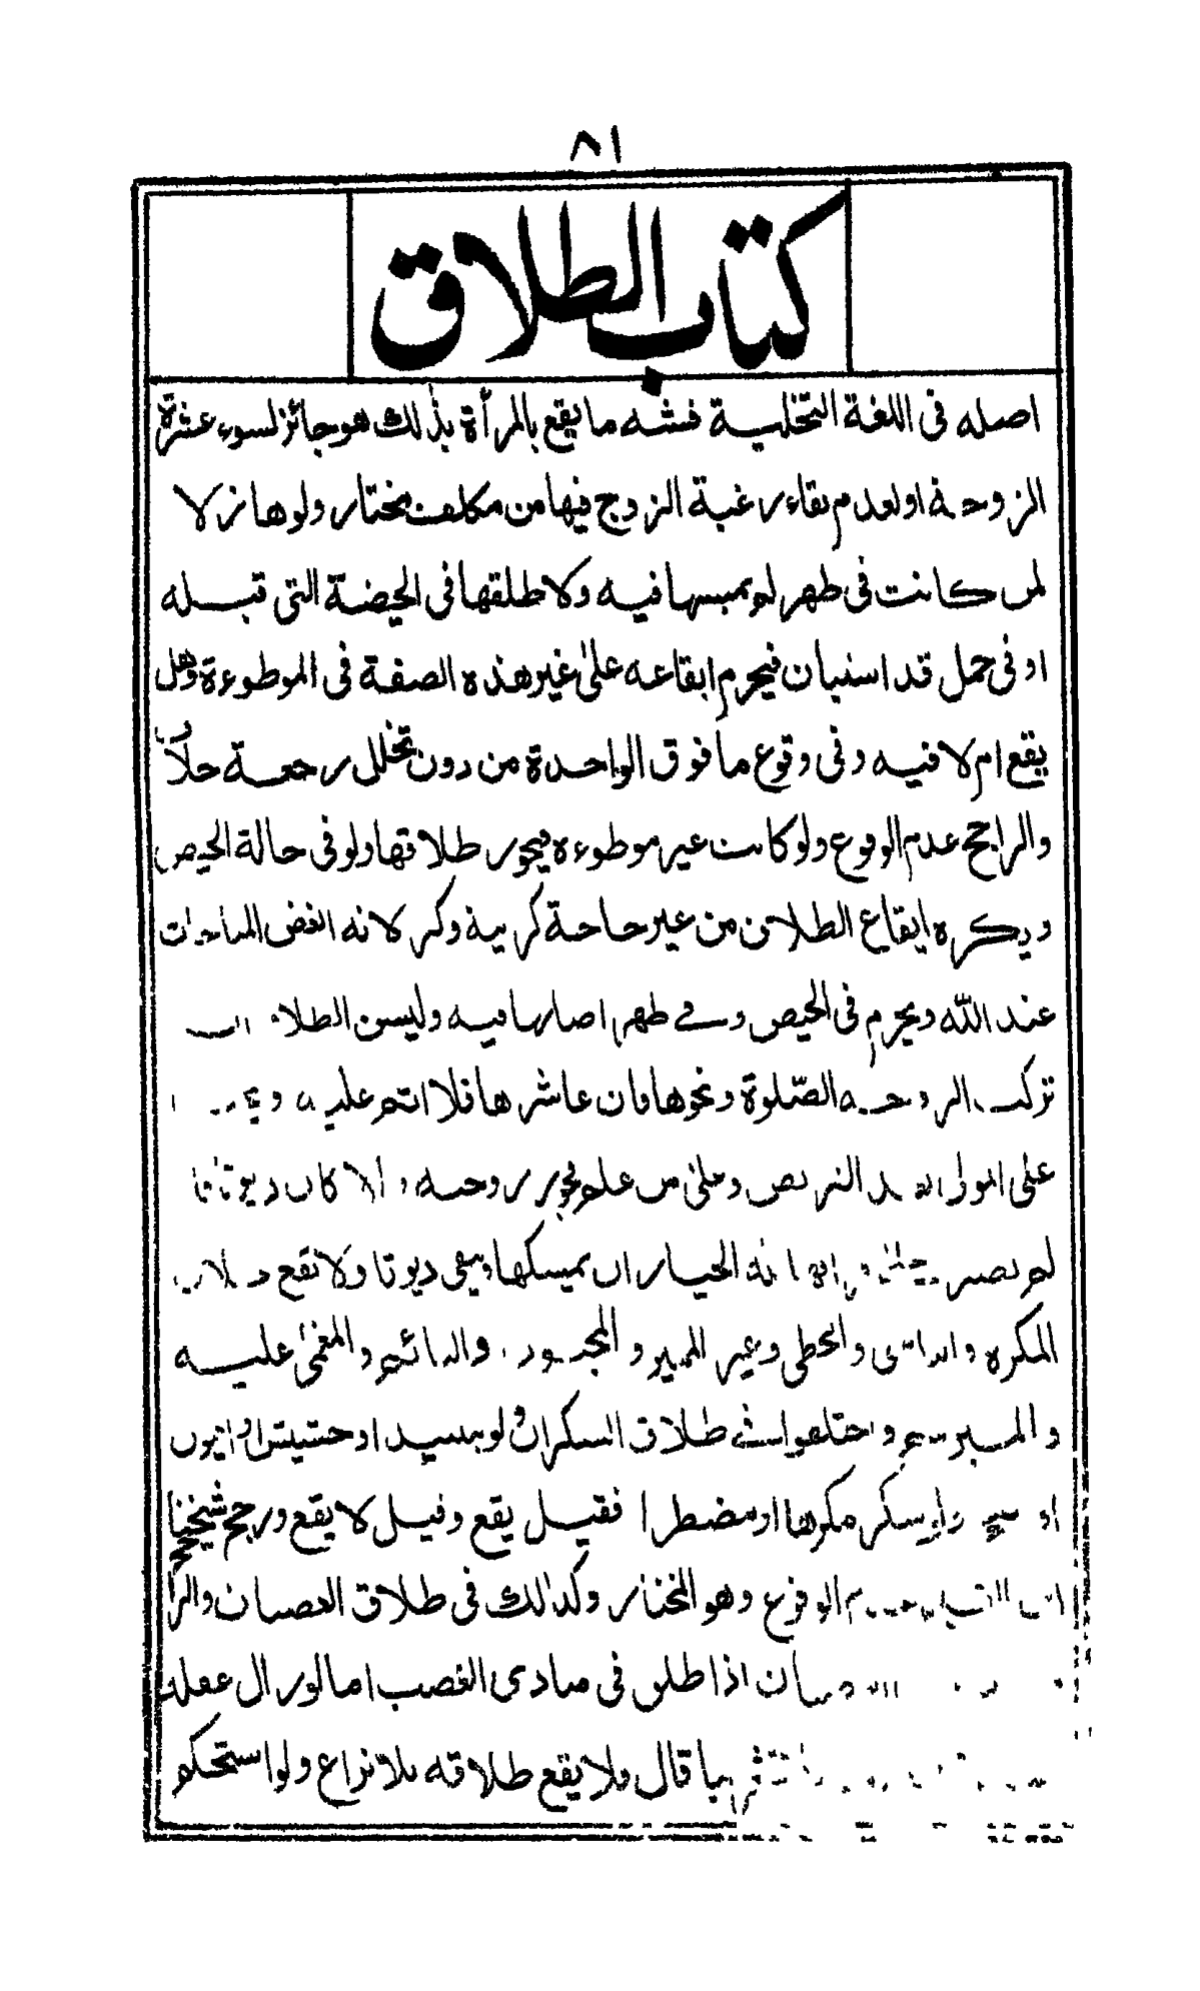 ٨١
كتاب الطلاق
اصله فى اللغة التخلية فشبه ما يقع بالمرأة بذلك هو جائز لسوء عشرة
الزوجة او لعدم بقاء رغبة الزوج فيها من مكلف مختار ولو هازلا
لمن كانت فى طهر لم يمسها فيه ولا طلقها فى الحيضة التى قبله
او فى حمل قد استبان فيحرم ايقاعه على غير هذه الصفة فى الموطوءة وهل
يقع ام لا فيه وفى وقوع ما فوق الواحدة من دون تخلل رجعة خلاف
والراجح عدم الوقوع ولو كانت غير موطوءة فيجوز طلاقها ولو فى حالة الحيض
ويكره ايقاع الطلاق من غير حاجة كريبة وكبر لانه ابغض المباحات
عند الله ويحرم فى الحيض وفى طهر اصابها فيه وليس الطلاق
ترك الزوجة الصلوة ونحوها فان عاشرها فلا اثم عليه
على المولى بعد التربص وعلى من علم فجور زوجته والا كان ديوثا
لم تصبر الخيار ان يمسكها ويبقى ديوثا ولا يقع طلاق
المكره والناسى والمخطى وغير المميز والمجنون والنائم والمغمى عليه
والمبرسم واختلفوا فى طلاق السكران ولو بنبيذ او حشيش او افيون
او بنج ولو سكر مكرها او مضطرا فقيل يقع وقيل لا يقع ورجح شيخنا
الوقوع وهو المختار وكذلك فى طلاق الغضبان والراجح
ان اذا طلق فى مبادى الغضب اما لو زال عقله
بما قال فلا يقع طلاقه بلا نزاع ولو استحكم